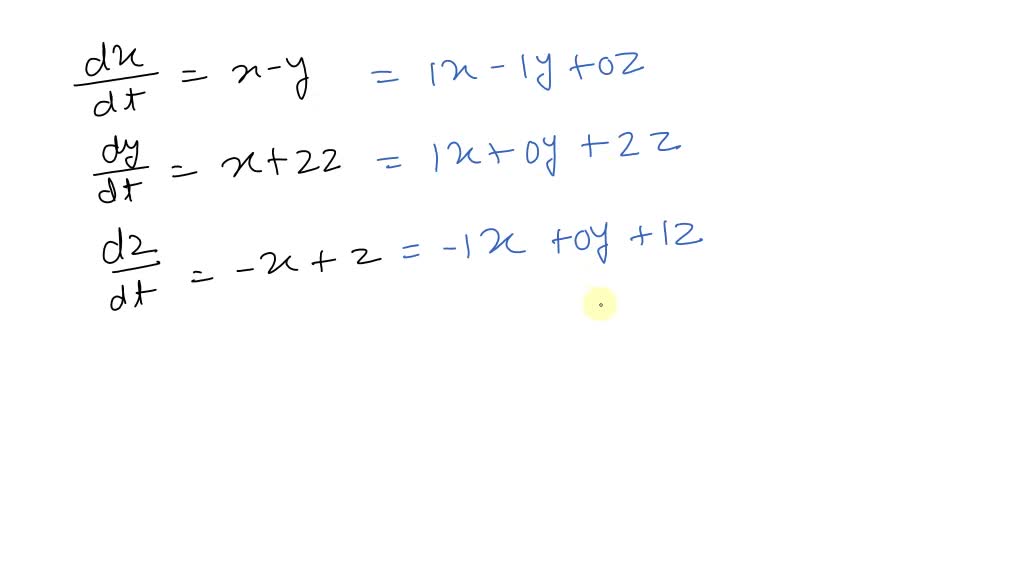 dx/dt = x-y = 1x - 1y + 0z
dy/dt = x+2z = 1x + 0y + 2z
dz/dt = -x + z = -1x + 0y + 1z